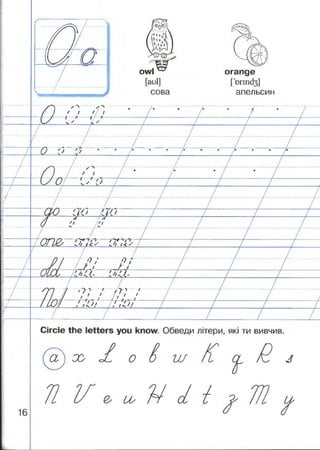 O o
owl orange
[aʊl] ['ɒrɪndʒ]
сова апельсин
O O O
o o o
Oo Oo
go go go
one one one
old old old
No! No! No!
Circle the letters you know. Обведи літери, які ти вивчив.
a x L o b w K q R s
n U e u H d t z M y
16